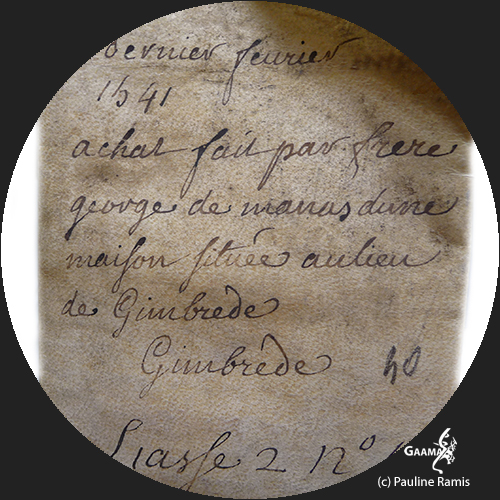 Dernier feurier
1541
achat fait par frere
george de manas dune
maison située aulieu
de Gimbrède
Gimbrède 40
Liasse 2 no
GAAMA
(c) Pauline Ramis